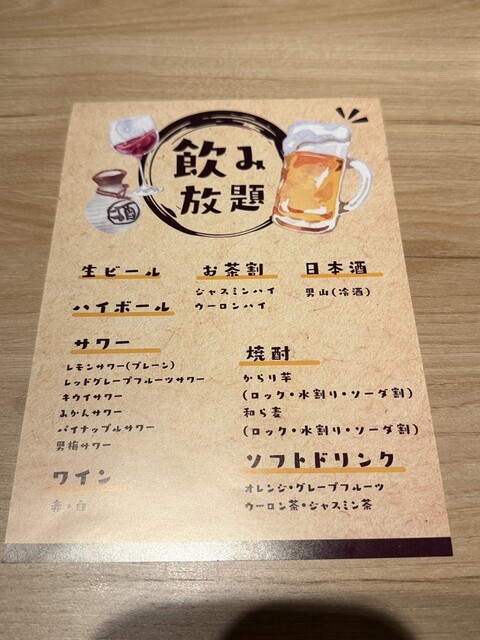 飲み
放題
酒
生ビール
ハイボール
お茶割
ジャスミンハイ
ウーロンハイ
日本酒
男山(冷酒)
サワー
レモンサワー(プレーン)
レッドグレープフルーツサワー
キウイサワー
みかんサワー
パイナップルサワー
男梅サワー
ワイン
赤・白
焼酎
からり芋
(ロック・水割り・ソーダ割)
和ら麦
(ロック・水割り・ソーダ割)
ソフトドリンク
オレンジ・グレープフルーツ
ウーロン茶・ジャスミン茶